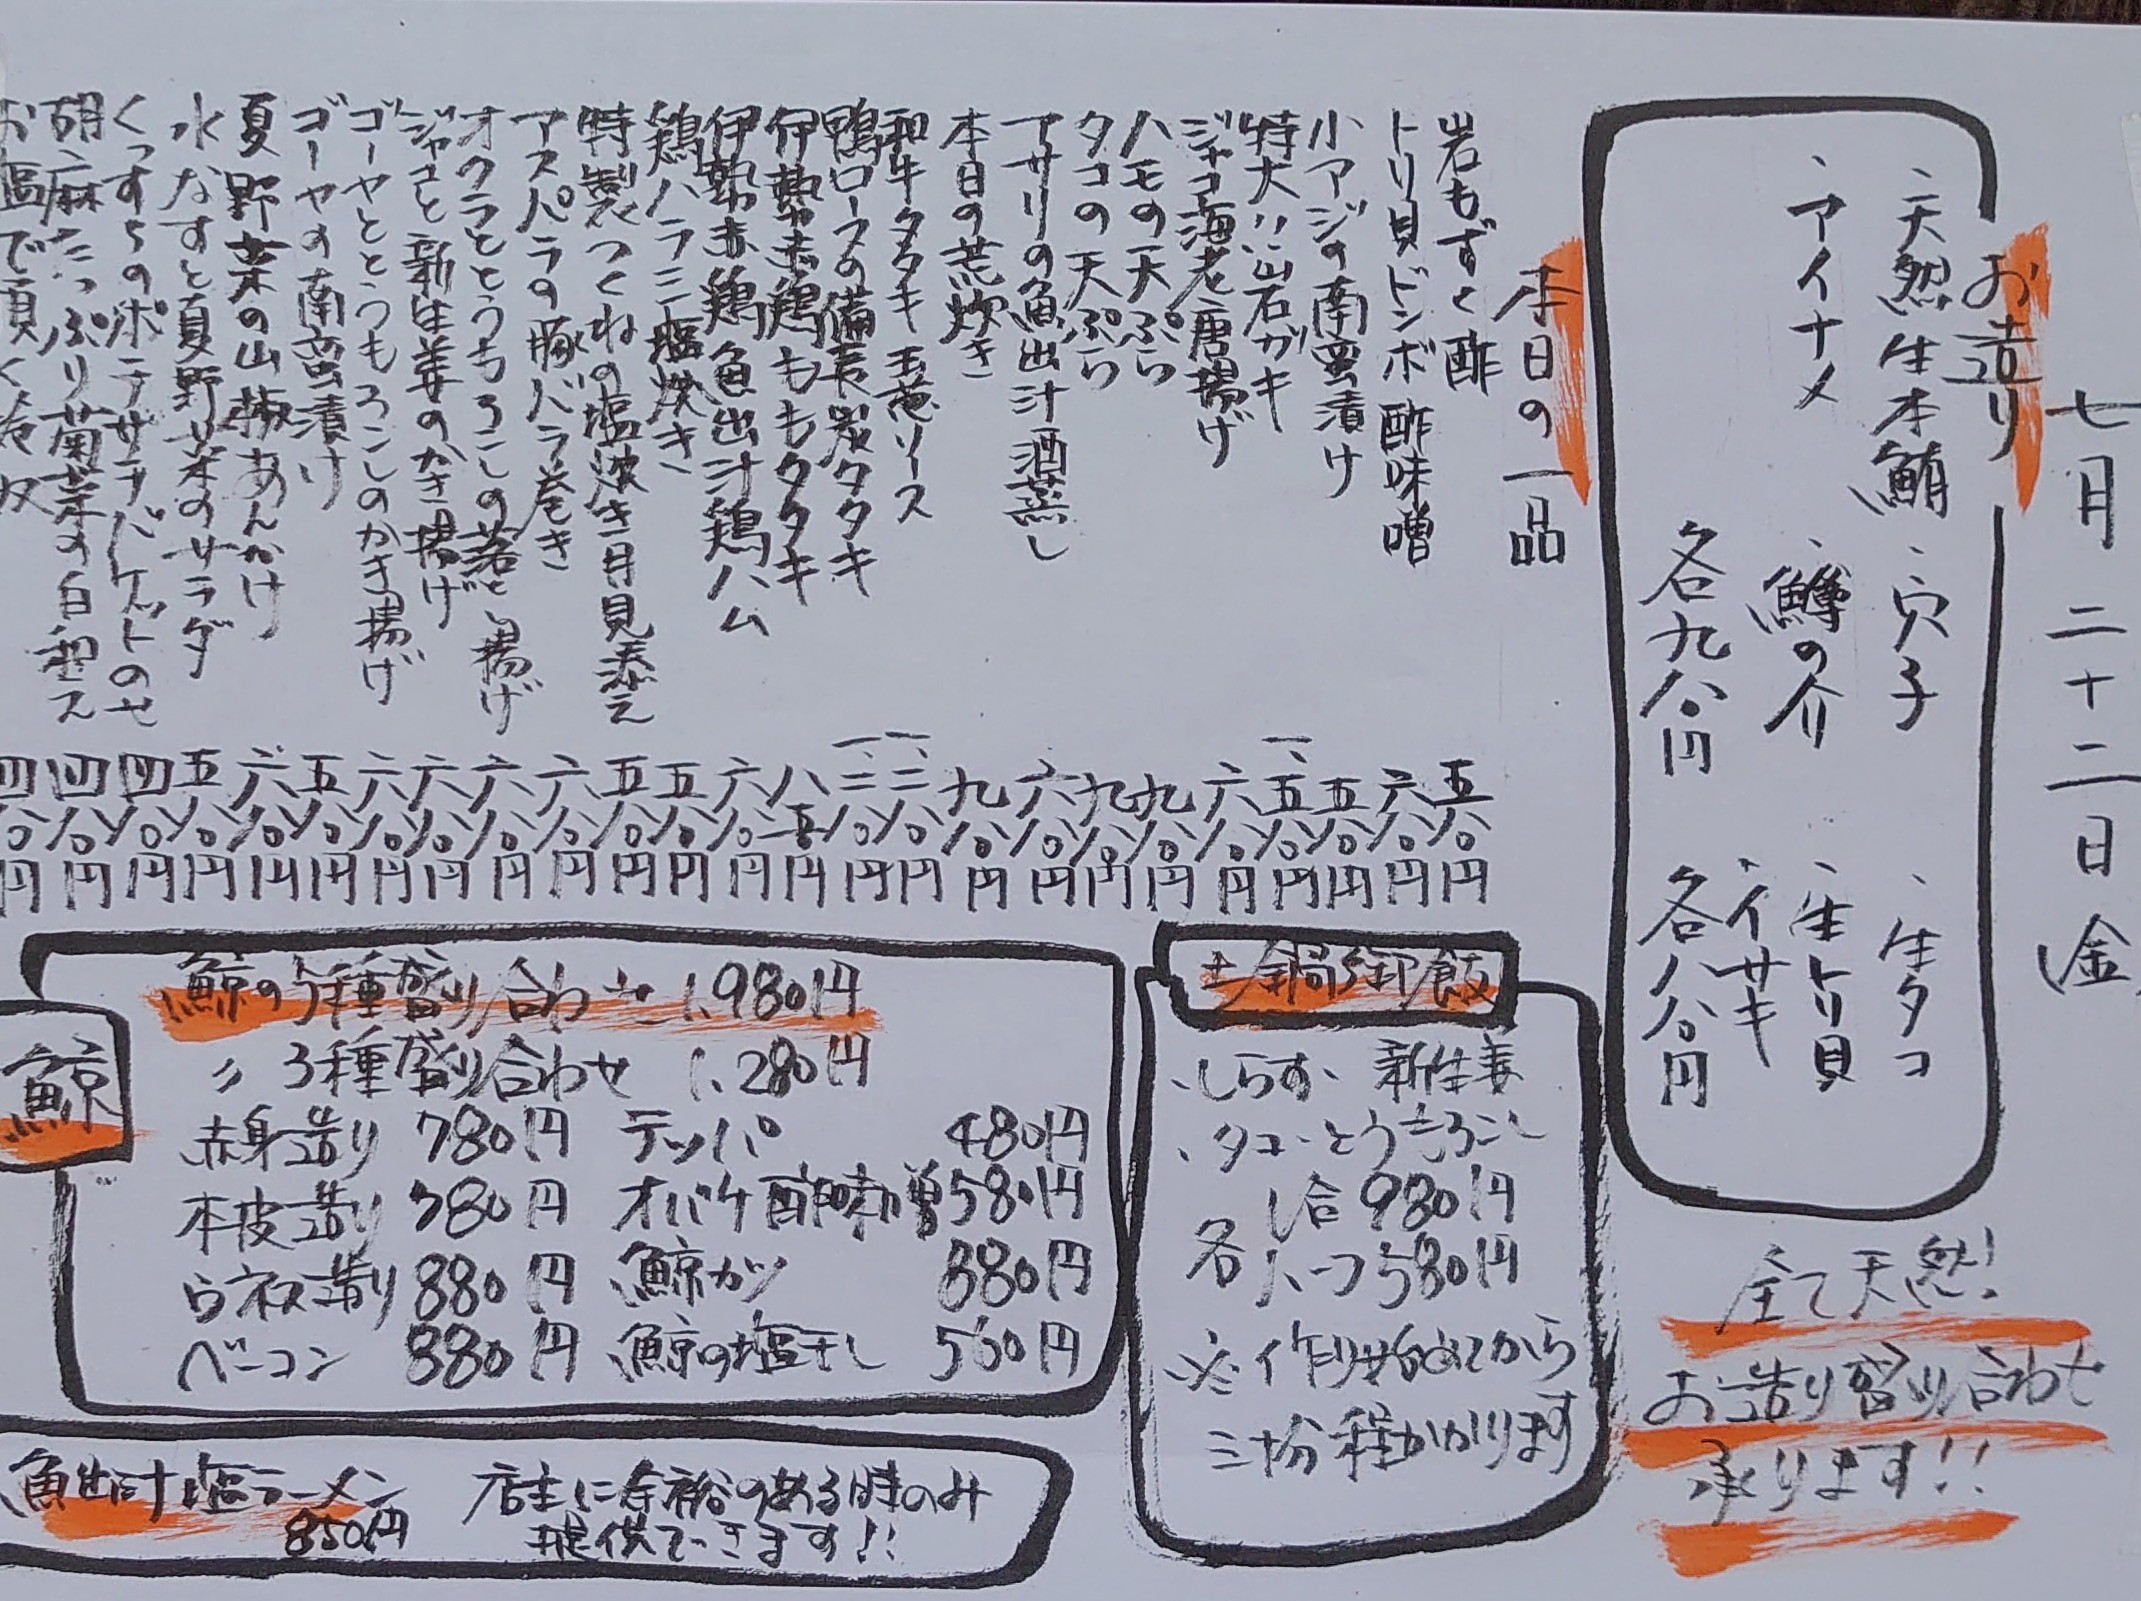 七月二十二日(金)
お造り
、天然生本鮪 、穴子 、生タコ
、アイナメ 、鱒の介 、生トリ貝
、イサキ
各九八〇円 各八八〇円
全て天然!
お造り盛り合わせ
承ります!!
本日の一品
岩もずく酢 五八〇円
トリ貝ドンボ酢味噌 六八〇円
小アジの南蛮漬け 五八〇円
特大!!岩ガキ 一、五八〇円
ジャコ海老唐揚げ 六八〇円
ハモの天ぷら 九八〇円
タコの天ぷら 九八〇円
アサリの魚出汁酒蒸し 六八〇円
本日の荒炊き 九八〇円
和牛タタキ玉葱ソース 一、二八〇円
鴨ロースの備長炭タタキ 一、二八〇円
伊勢赤鶏ももタタキ 八五〇円
伊勢赤鶏魚出汁鶏ハム 六八〇円
鶏ハラミ塩焼き 五八〇円
特製つくねの塩焼き月見添え 五八〇円
アスパラの豚バラ巻き 六八〇円
オクラととうもろこしの落とし揚げ 六八〇円
ジャコと新生姜のかき揚げ 六八〇円
ゴーヤととうもろこしのかき揚げ 六八〇円
ゴーヤの南蛮漬け 五八〇円
夏野菜の山椒あんかけ 六八〇円
水なすと夏野菜のサラダ 五八〇円
くっすらのポテサラバケットのせ 四八〇円
胡麻たっぷり菊菜の白和え 四八〇円
お塩で頂く冷奴 四八〇円
土鍋御飯
、しらす、新生姜
、タコ、とうもろこし
各 一合980円
ハーフ580円
※作り始めてから
三十分程かかります
鯨
鯨の5種盛り合わせ 1,980円
〃 3種盛り合わせ 1,280円
赤身造り 780円 テッパ 480円
本皮造り 780円 オバケ酢味噌 580円
うねす造り 880円 鯨カツ 880円
ベーコン 880円 鯨の塩干し 580円
魚出汁塩ラーメン
850円
店主に余裕のある時のみ
提供できます!!